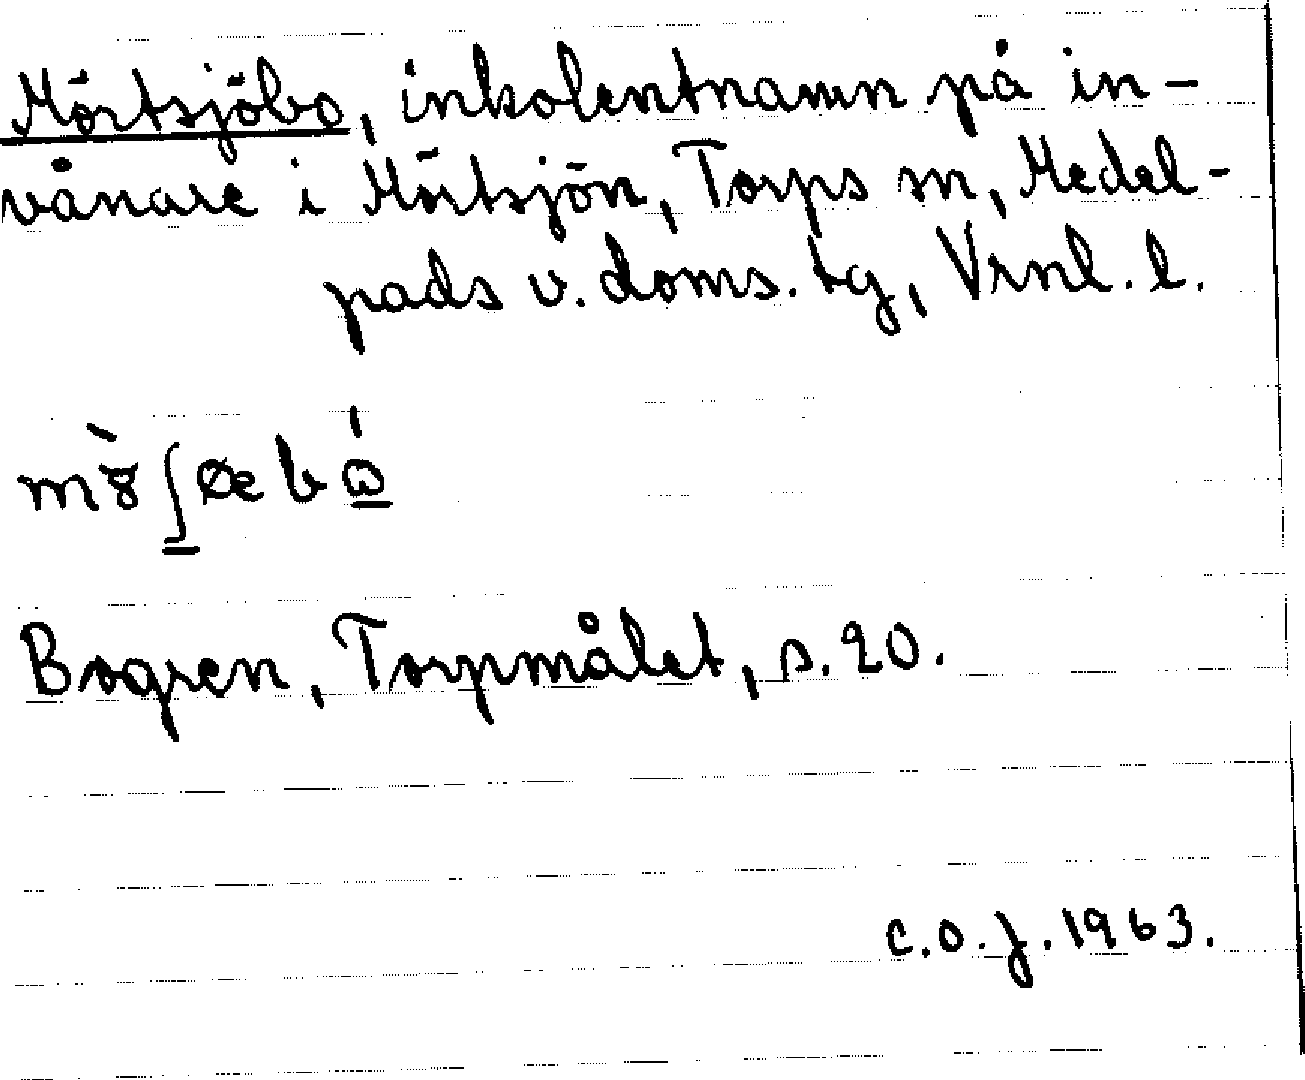 Mörtsjöbo, inkolentnamn på in-
vånare i Mörtsjön, Torps sn, Medel-
pads v. doms. tg, Vrnl. l.
Bogren, Torpmålet, s. 20.
c.o.j. 1963.